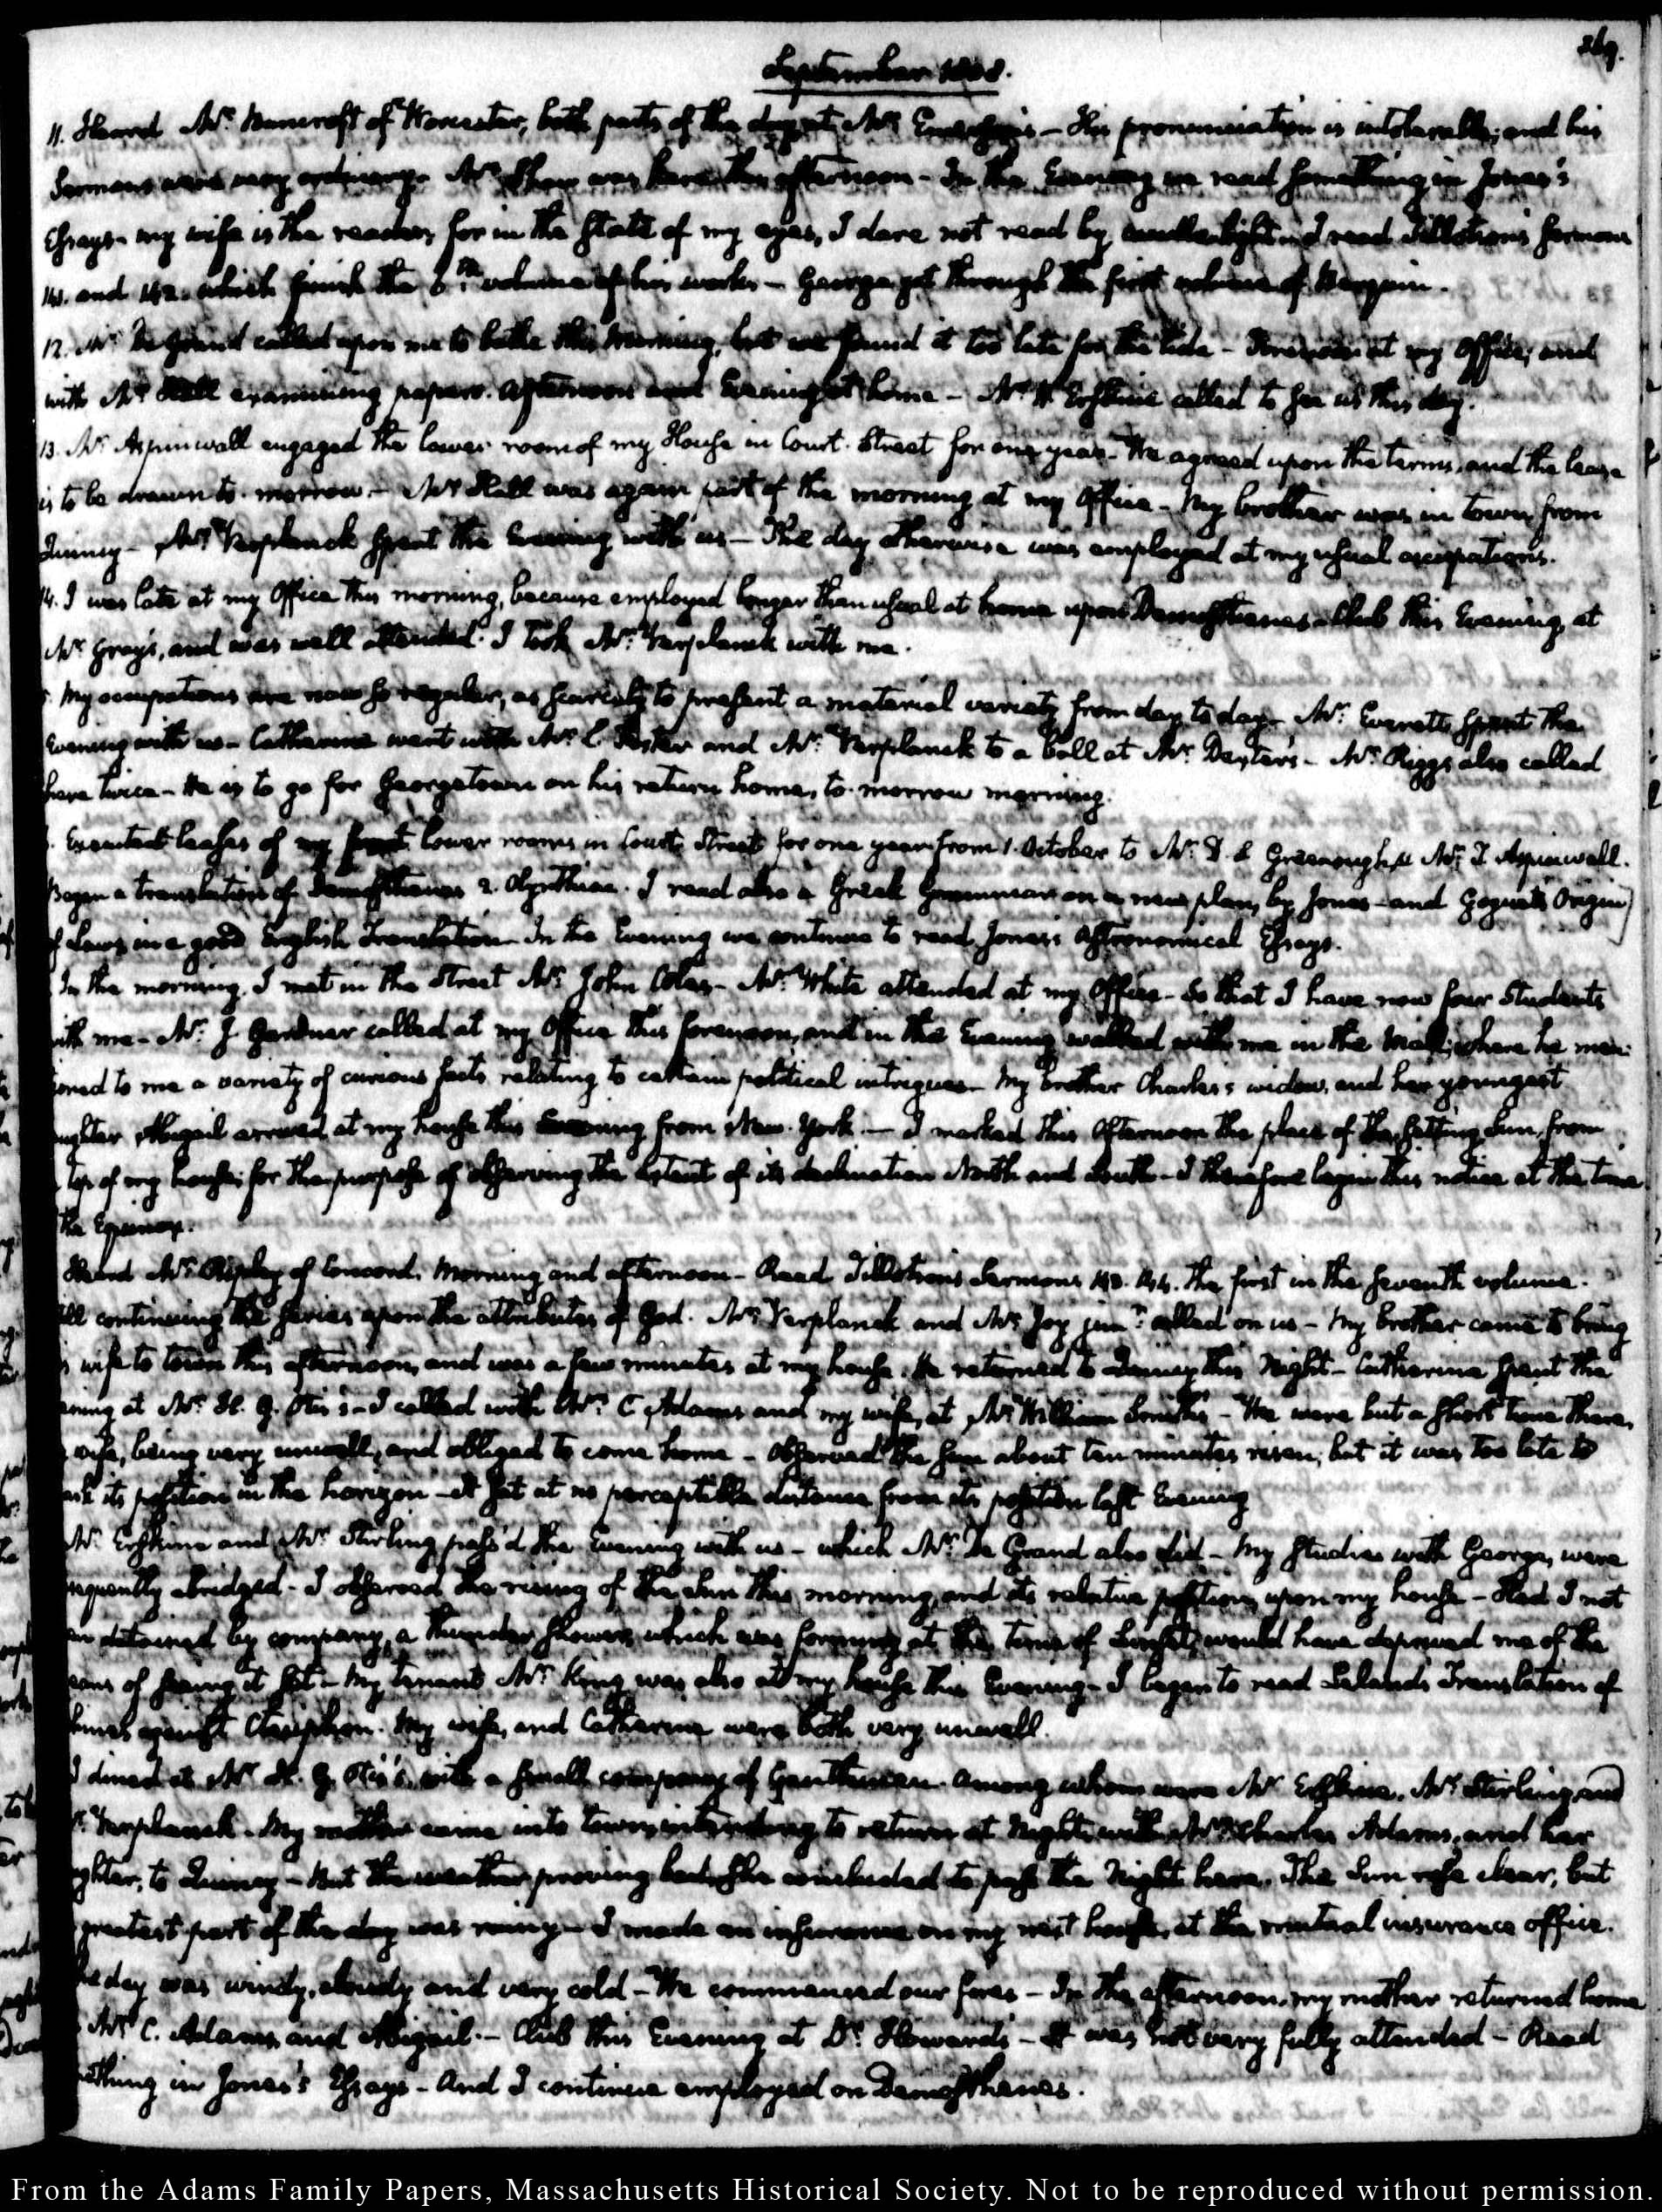 269.
September 1808.
11. Heard Mr. Bancroft of Worcester, both parts of the day at Mr. Emerson's — His pronunciation is intolerable; and his
Sermons were very ordinary. Mr. Shaw was here this afternoon — In the Evening we read something in Jones's
Essays — my wife is the reader, for in the state of my eyes, I dare not read by candle-light — I read Tillotson's sermons
141. and 142. which finish the 6th. volume of his works — George got through the first volume of
12. Mr. De Grand called upon me to bathe this morning, but we found it too late for the tide — Forenoon at my Office, and
with Mr. Hall examining papers. Afternoon and Evening at home — Mr. Erskine called to see us this day.
13. Mr. Aspinwall engaged the lower room of my House in Court-Street for one year — We agreed upon the terms, and the lease
is to be drawn to-morrow — Mr. Hall was again part of the morning at my Office — My brother was in town from
Quincy — Mr. Verplanck spent the Evening with us — The day otherwise was employed at my usual occupations.
14. I was late at my Office this morning, because employed longer than usual at home upon Demosthenes — Club this Evening at
Mr. Gray's, and was well attended. I took Mr. Verplanck with me.
My occupations are now so regular, as scarcely to present a material variety from day to day — Mr. Everett spent the
Evening with us — Catherine went with Mr. C. Foster and Mr. Verplanck to a ball at Mr. Dexter's — Mr. Riggs also called
here twice — He is to go for Georgetown on his return home, to-morrow morning.
Executed leases of my front lower rooms in Court Street for one year from 1. October to Mr. D. S. Greenough, & Mr. T. Aspinwall.
Began a translation of Demosthenes 2. Olynthiac. I read also a Greek Grammar on a new plan, by Jones — and Goguet's Origin
of Laws in a good English Translation — In the Evening we continue to read Jones's Astronomical Essays.
In the morning, I met in the Street Mr. John Coles — Mr. White attended at my Office — So that I have now four Students
with me — Mr. J. Gardner called at my Office this forenoon, and in the Evening walked with me in the Mall; where he men-
tioned to me a variety of curious facts relating to certain political intrigues — My brother Charles's widow, and her youngest
ughter Abigail arrived at my house this Evening from New-York. — I marked this Afternoon the place of the setting Sun, from
top of my house; for the purpose of observing the extent of its declination North and South — I therefore begin this notice at the time
the Equinox.
Heard Mr. Ripley of Concord. Morning and afternoon — Read Tillotson's Sermons 143. 144. the first in the seventh volume.
ill continuing the series upon the attributes of God. Mr. Verplanck and Mr. Joy junr. called on us — My brother came to bring
s wife to town this afternoon, and was a few minutes at my house. He returned to Quincy this Night — Catherine spent the
ening at Mr. H. G. Otis's — I called with Mrs. C. Adams and my wife, at Mr. William Smith's — We were but a short time there,
wife, being very unwell, and obliged to come home — Observed the Sun about ten minutes risen; but it was too late to
ark its position in the horizon — It set at no perceptible distance from its position last Evening
Mr. Erskine and Mr. Stirling pass'd the Evening with us — which Mr. De Grand also did — My studies with George, were
sequently abridged — I observed the rising of the Sun this morning, and its relative position upon my house — Had I not
en detained by company, a thunder shower, which was forming at the time of Sunset, would have deprived me of the
eans of seeing it set — My tenant Mr. King was also at my house this Evening — I began to read Leland's Translation of
hines against Ctesiphon. My wife, and Catherine were both very unwell.
I dined at Mr. H. G. Otis's, with a small company of Gentlemen. Among whom were Mr. Erskine, Mr. Stirling and
r. Verplanck. My mother came into town, intending to return at Night, with Mrs. Charles Adams, and her
ghter, to Quincy — But the weather proving bad, she concluded to pass the Night here. The Sun rose clear, but
greatest part of the day was rainy — I made an insurance on my house, at the mutual insurance office.
he day was windy, cloudy and very cold — We commenced our fires — In the afternoon, my mother returned home
Mrs. C. Adams, and Abigail. — Club this Evening at Dr. Howard's — It was not very fully attended — Read
ething in Jones's Essays — And I continue employed on Demosthenes.
From the Adams Family Papers, Massachusetts Historical Society. Not to be reproduced without permission.